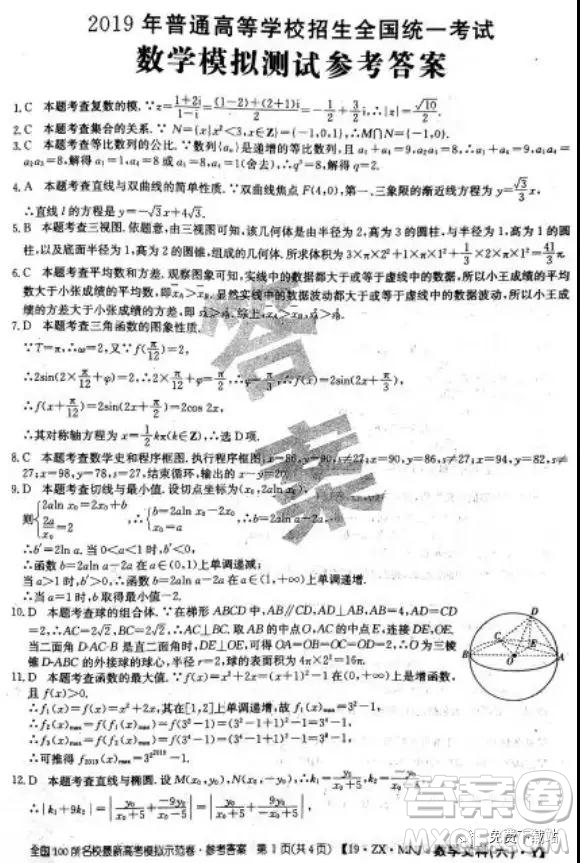 2019年普通高等学校招生全国统一考试
数学模拟测试参考答案
1.C 本题考查复数的模.∵z=(1+2i)/(1-i)=((1-2)+(2+1)i)/2=-1/2+3/2i,∴|z|=√10/2.
2.C 本题考查集合的关系.∵N={x|x²<3,x∈Z}={-1,0,1},∴M∩N={-1,0}.
3.C 本题考查等比数列的公比.∵数列{aₙ}是递增的等比数列,且a₁+a₄=9,a₂a₃=8,∴a₁+a₄=9,a₁a₄=
a₂a₃=8,解得a₁=1,a₄=8或a₁=8,a₄=1(舍去),∴q³=8,解得q=2.
4.A 本题考查直线与双曲线的简单性质.∵双曲线焦点F(4,0),第一、三象限的渐近线方程为y=√3/3x,
∴直线l的方程是y=-√3x+4√3.
5.B 本题考查三视图.依题意,由三视图可知,该几何体是由底面半径为2,高为3的圆柱,与半径为1,高为1的圆
柱,以及底面半径为1,高为2的圆锥,组成的几何体.所求体积为3×π×2²+1×π×1²+1/3×2×π×1²=41/3π.
6.C 本题考查平均数和方差.观察图象可知,实线中的数据都大于或等于虚线中的数据,所以小王成绩的平均
数大于小张成绩的平均数,即x̄A>x̄B,显然实线中的数据波动都大于或等于虚线中的数据波动,所以小王成
绩的方差大于小张成绩的方差,即
7.D 本题考查三角函数的图象性质.
∵T=π,∴ω=2,又∵f(π/12)=2,
∴2sin(2×π/12+φ)=2,∴2×π/12+φ=π/2,∴φ=π/3,∴f(x)=2sin(2x+π/3),
∴f(x+π/12)=2sin(2x+π/2)=2cos 2x,
∴其对称轴方程为x=1/2kπ(k∈Z),∴选D项.
8.C 本题考查数学史和程序框图.执行程序框图:x=86,y=90,s≠27;x=90,y=86,s≠
27;x=98,y=78,s=27,结束循环,输出的x-y=20.
9.D 本题考查切线与最小值.设切点坐标为(x₀,2aln x₀),
则{2aln x₀=2x₀+b, 2a/x₀=2 ∴{b=2aln x₀-2x₀, x₀=a
∴b′=2ln a.当0<a<1时,b′<0,
∴函数b=2aln a-2a在(0,1)上单调递减;
当a>1时,b′>0,∴函数b=2aln a-2a在(1,+∞)上单调递增.
∴当a=1时,b取得最小值-2.
10.D 本题考查球的组合体.∵在梯形ABCD中,AB∥CD,AD⊥AB,AB=4,AD=CD
=2,∴AC=2√2,BC=2√2,∴AC⊥BC.取AB的中点O,AC的中点E,连接DE,OE.
当二面角D-AC-B是直二面角时,DE⊥OE,可得OA=OB=OC=OD=2,∴O为三棱
锥D-ABC的外接球的球心,半径r=2,球的表面积为4π×2²=16π.
A B C D E O
11.D 本题考查函数的最大值.∵f(x)=x²+2x=(x+1)²-1在(0,+∞)上是增函数,
且f(x)>0.
∴f₁(x)=f(x)=x²+2x,其在[1,2]上单调递增,∴f₁(x)max=f(2)=3²-1,
∴f₂(x)max=f(f₁(x)max)=f(3²-1)=(3²-1+1)²-1=3⁴-1,
∴f₃(x)max=f(f₂(x)max)=f(3⁴-1)=(3⁴-1+1)²-1=3⁸-1,
12.D 本题考查直线与椭圆.设M(x₀,y₀),N(x₀,-y₀),∴k₁=y₀/(x₀+5),k₂=-y₀/(x₀-5),
全国100所名校最新高考模拟示范卷·参考答案 第1页(共4页)
答案